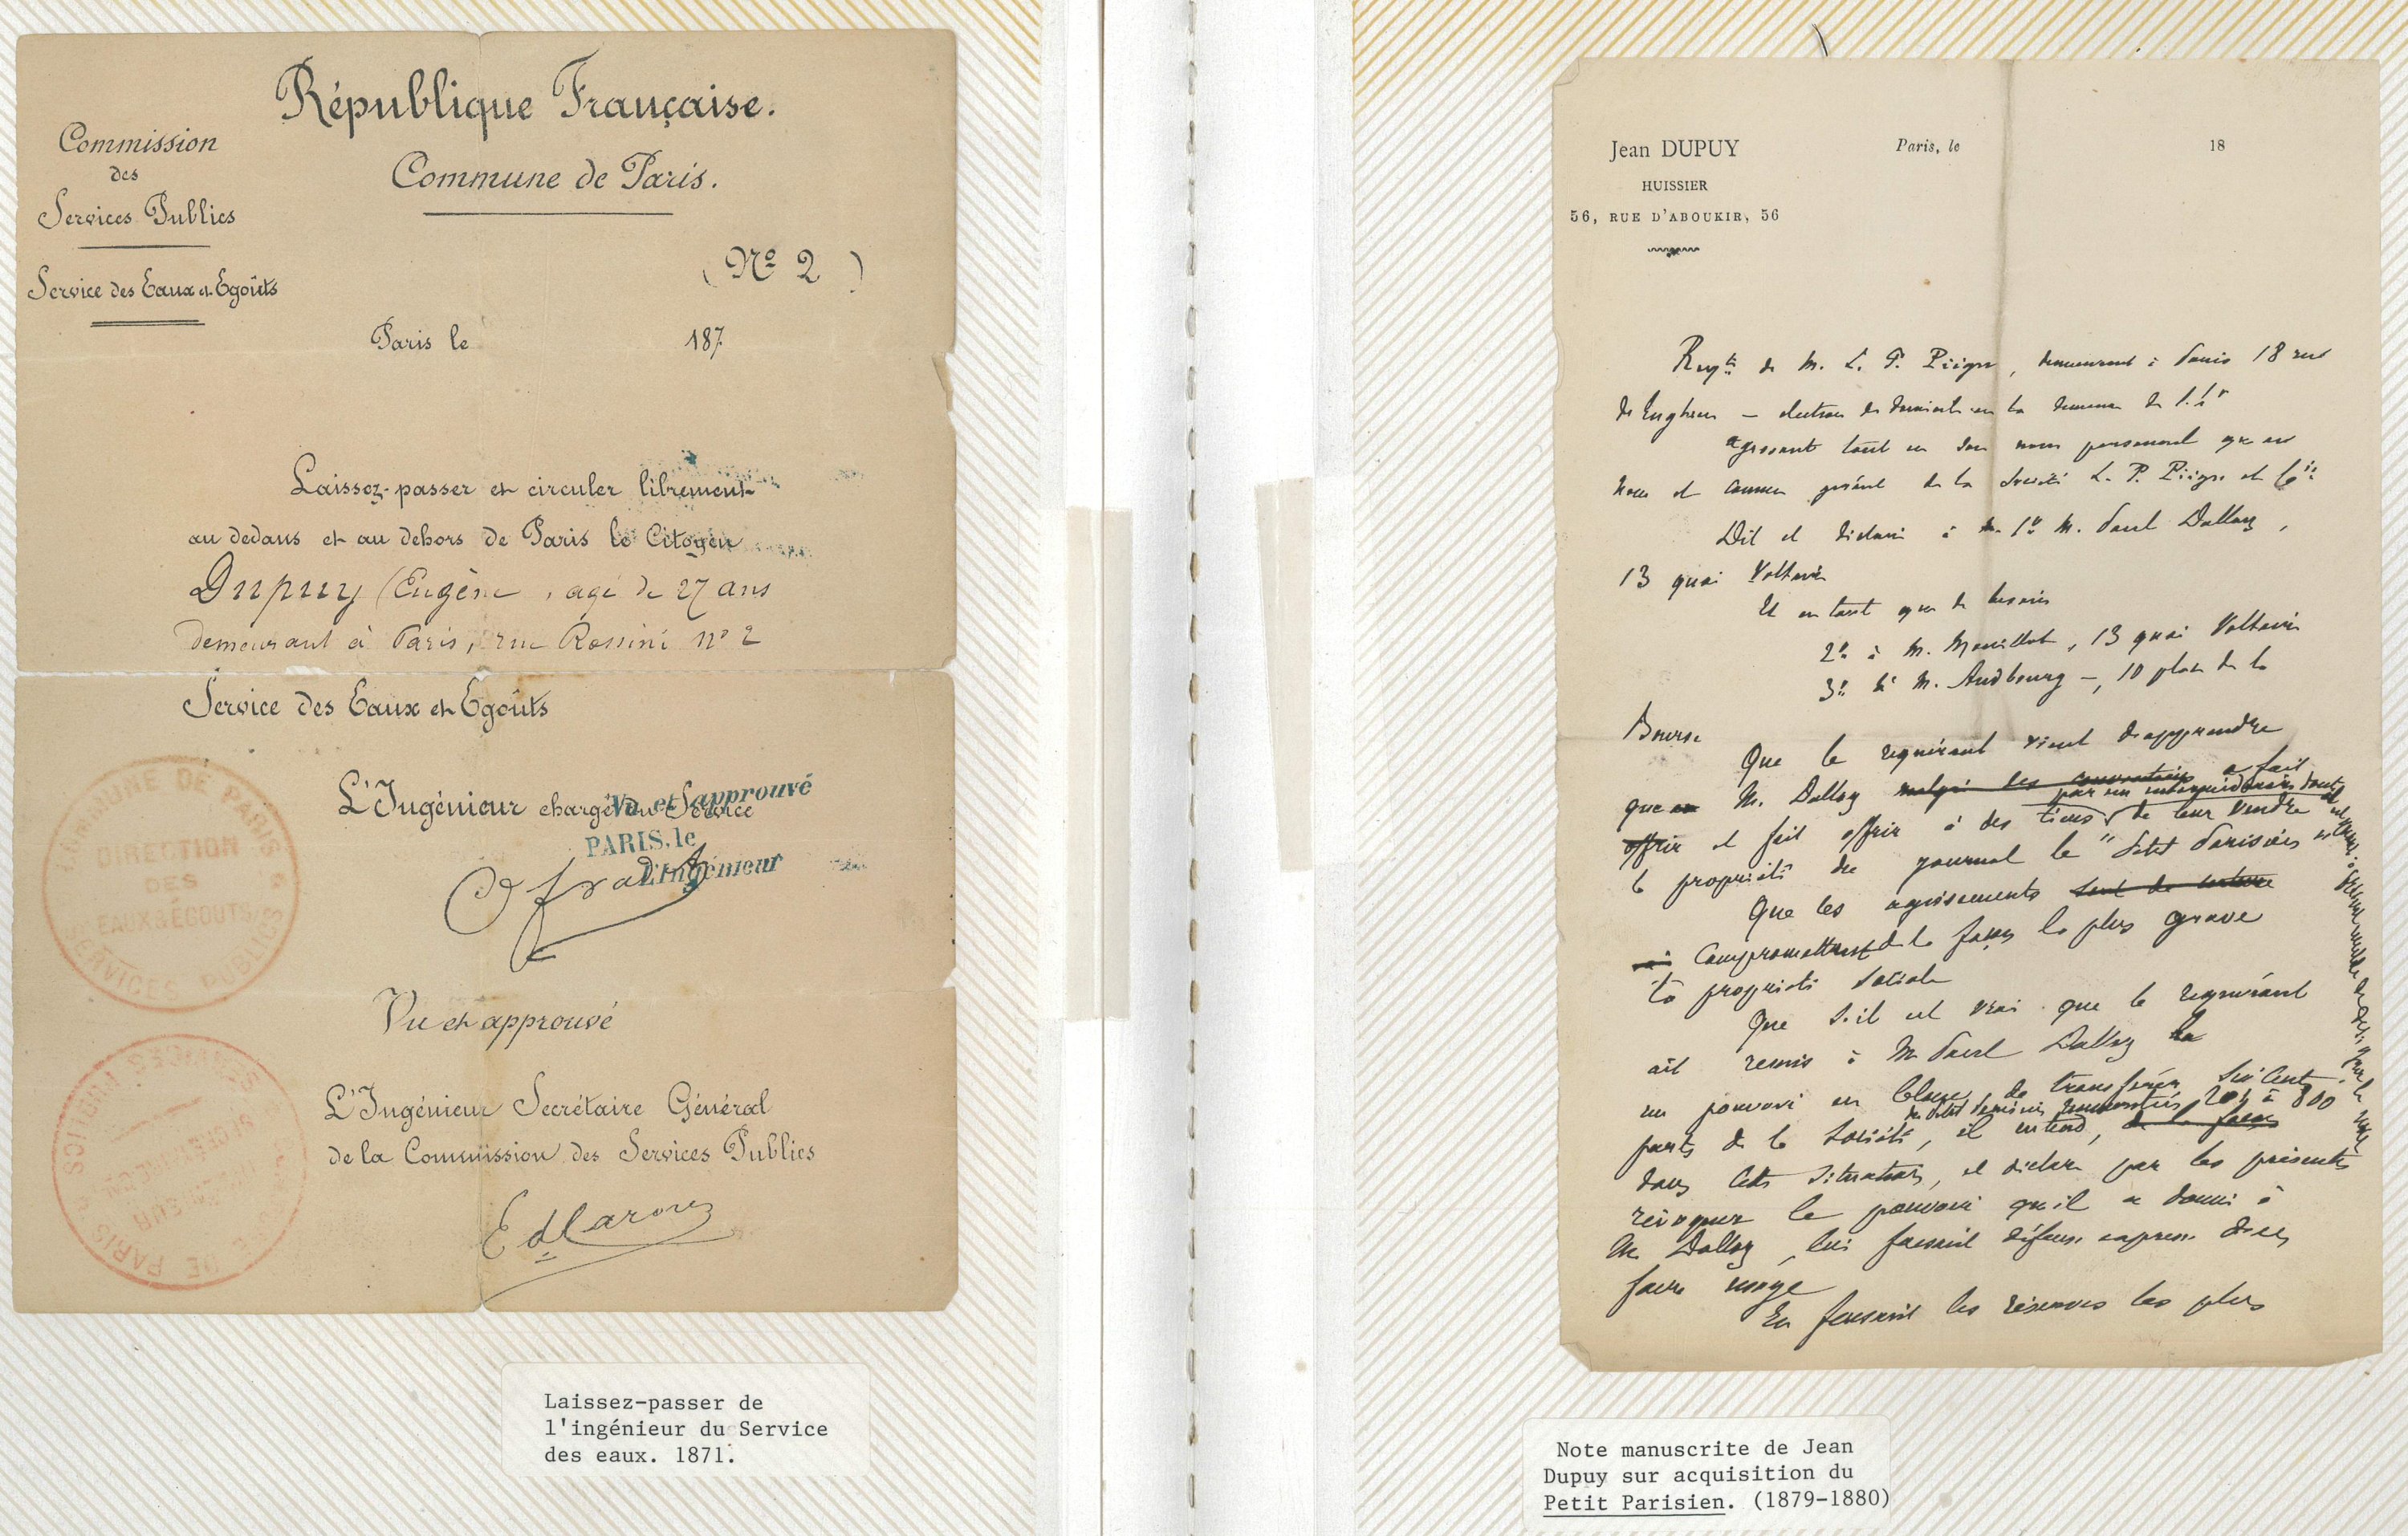 République Française.
Commune de Paris.
Commission
des
Services Publics
Service des Eaux et Egoûts
(No 2)
Paris le 187
Laissez-passer et circuler librement
au dedans et au dehors de Paris le Citoyen
Dupuy (Eugène, agé de 27 ans
demeurant à Paris, rue Rossini no 2
Service des Eaux et Egoûts
L'Ingénieur chargé du Service
Vu et approuvé
PARIS, le
L'Ingénieur
COMMUNE DE PARIS
DIRECTION
DES
EAUX & ÉGOUTS
SERVICES PUBLICS
Vu et approuvé
L'Ingénieur Secrétaire Général
de la Commission des Services Publics
Laissez-passer de
l'ingénieur du Service
des eaux. 1871.
Jean DUPUY
HUISSIER
56, RUE D'ABOUKIR, 56
Paris, le 18
de M. L. P. Piégu, demeurant à Paris 18 rue
d'Enghien — élection de domicile en la demeure de
agissant tant en son nom personnel que au
nom et comme gérant de la Société L. P. Piégu et Cie
Dit et déclaré à 1o M. Paul Dalloz,
13 quai Voltaire
Et en tant que de besoin
2o à M. Mouillot, 13 quai Voltaire
3o à M. Audbourg —, 10 place de la
Bourse
Que le requérant vient d'apprendre
que M. Dalloz malgré les conventions a fait
par un intermédiaire
offrir et fait offrir à des tiers de leur vendre
la propriété du journal le "Petit Parisien
Que les agissements
compromettent de la façon la plus grave
la propriété sociale
Que s'il est vrai que le requérant
ait remis à M Paul Dalloz
un pouvoir en blanc de transférer six cents
201 à 800
parts de la Société, il entend, de la façon
dans cette situation, et déclare par les présentes
révoquer le pouvoir qu'il a donné à
M. Dalloz, lui faisant défense expresse d'en
faire usage
En faisant les réserves les plus
Note manuscrite de Jean
Dupuy sur acquisition du
Petit Parisien. (1879-1880)